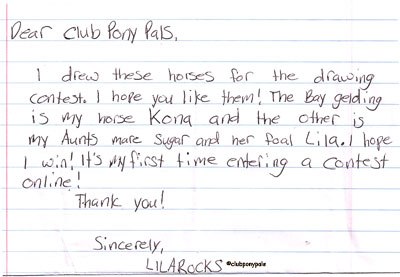 Dear Club Pony Pals,
I drew these horses for the drawing
contest. I hope you like them! The Bay gelding
is my horse Kona and the other is
my Aunts mare Sugar and her foal Lila. I hope
I win! It's my first time entering a contest
online!
Thank you!
Sincerely,
LILAROCKS @clubponypals